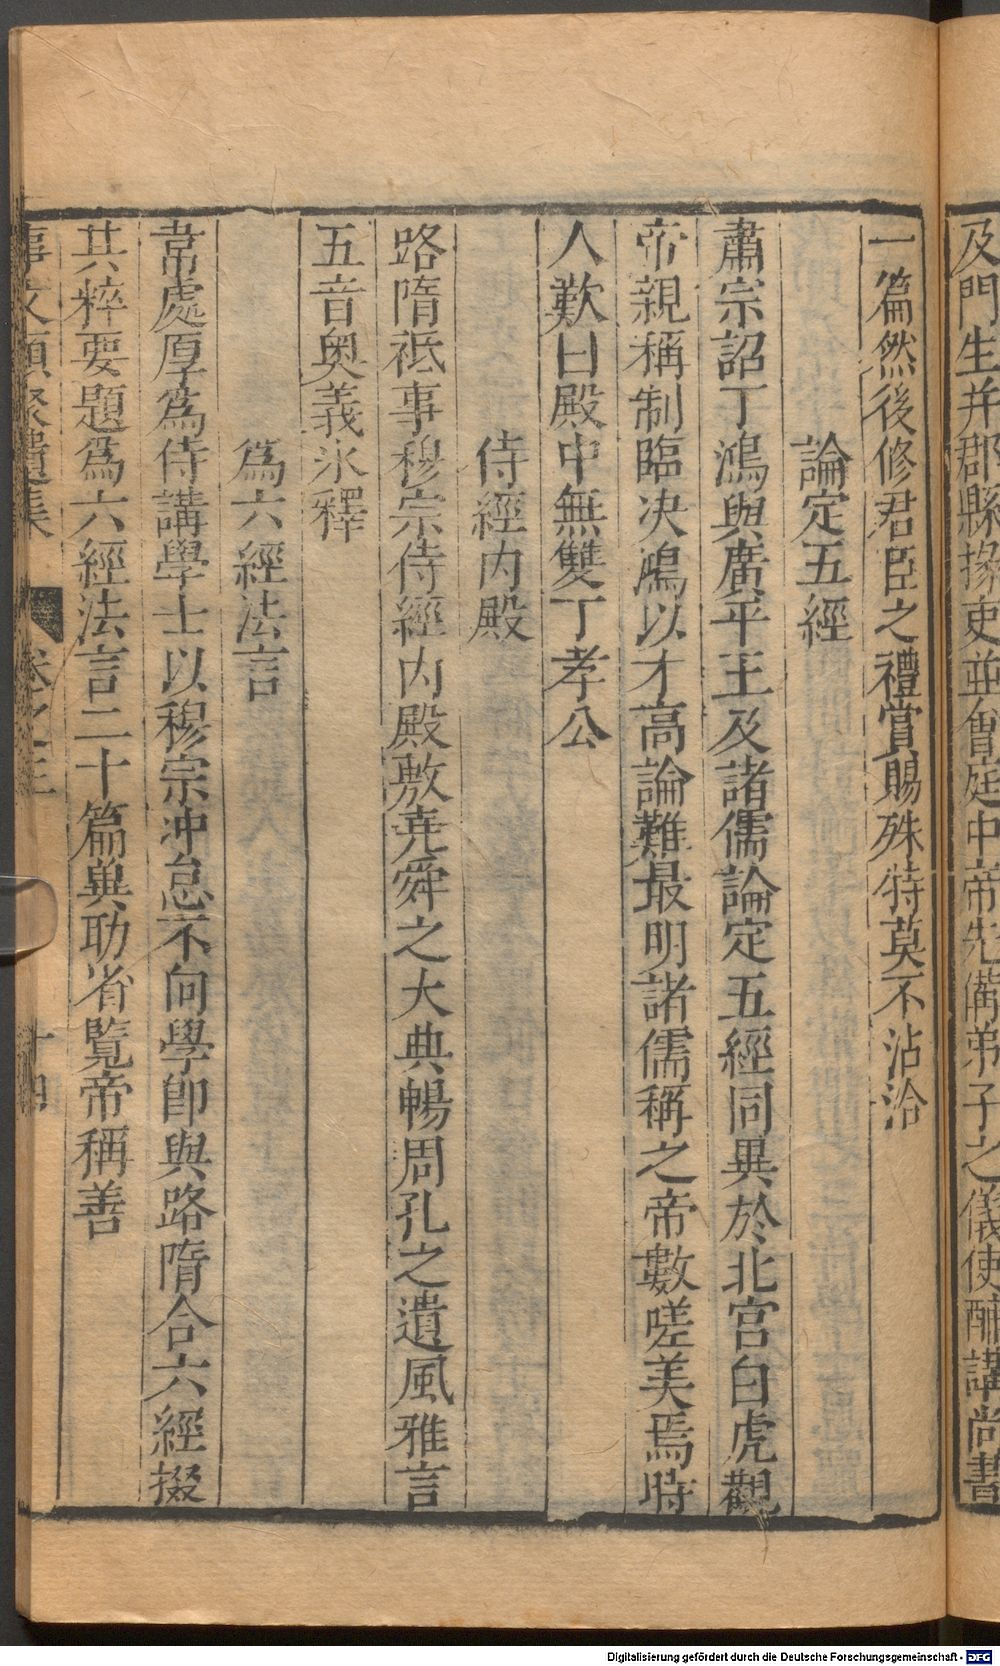 及門生并郡縣掾吏並會庭中帝先備弟子之儀使酺講尚書
一篇然後修君臣之禮賞賜殊特莫不沾洽
論定五經
肅宗詔丁鴻與廣平王及諸儒論定五經同異於北宮白虎觀
帝親稱制臨决鴻以才高論難最明諸儒稱之帝數嗟美焉時
人歎曰殿中無雙丁孝公
侍經内殿
路隋祗事穆宗侍經内殿敷堯舜之大典暢周孔之遺風雅言
五音奥義氷釋
爲六經法言
韋處厚爲侍講學士以穆宗冲怠不向學卽與路隋合六經掇
其粹要題爲六經法言二十篇與助省覽帝稱善
事文類聚遺集 卷之三 十四
Digitalisierung gefördert durch die Deutsche Forschungsgemeinschaft - DFG